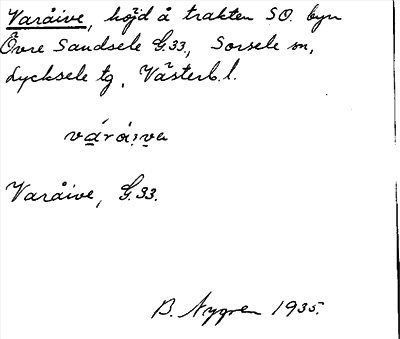 Varåive, höjd å trakten SO. byn
Övre Sandsele G.33, Sorsele sn,
Lycksele tg, Västerb. l.
várå:ve
Varåive, G.33.
B. Nygren 1935.